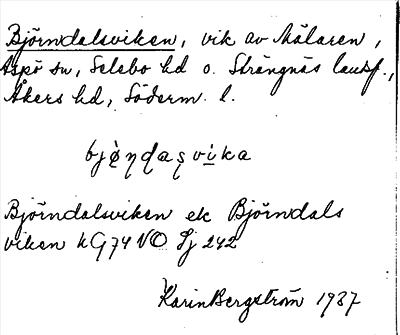 Björndalsviken, vik av Mälaren,
Aspö sn, Selebo hd o. Strängnäs landsf.,
Åkers hd, Söderm. l.
bjö̀ṇḍaṣvi̇ka
Björndalsviken ek Björndals
viken hG74 NO Sj 242
Karin Bergström 1937